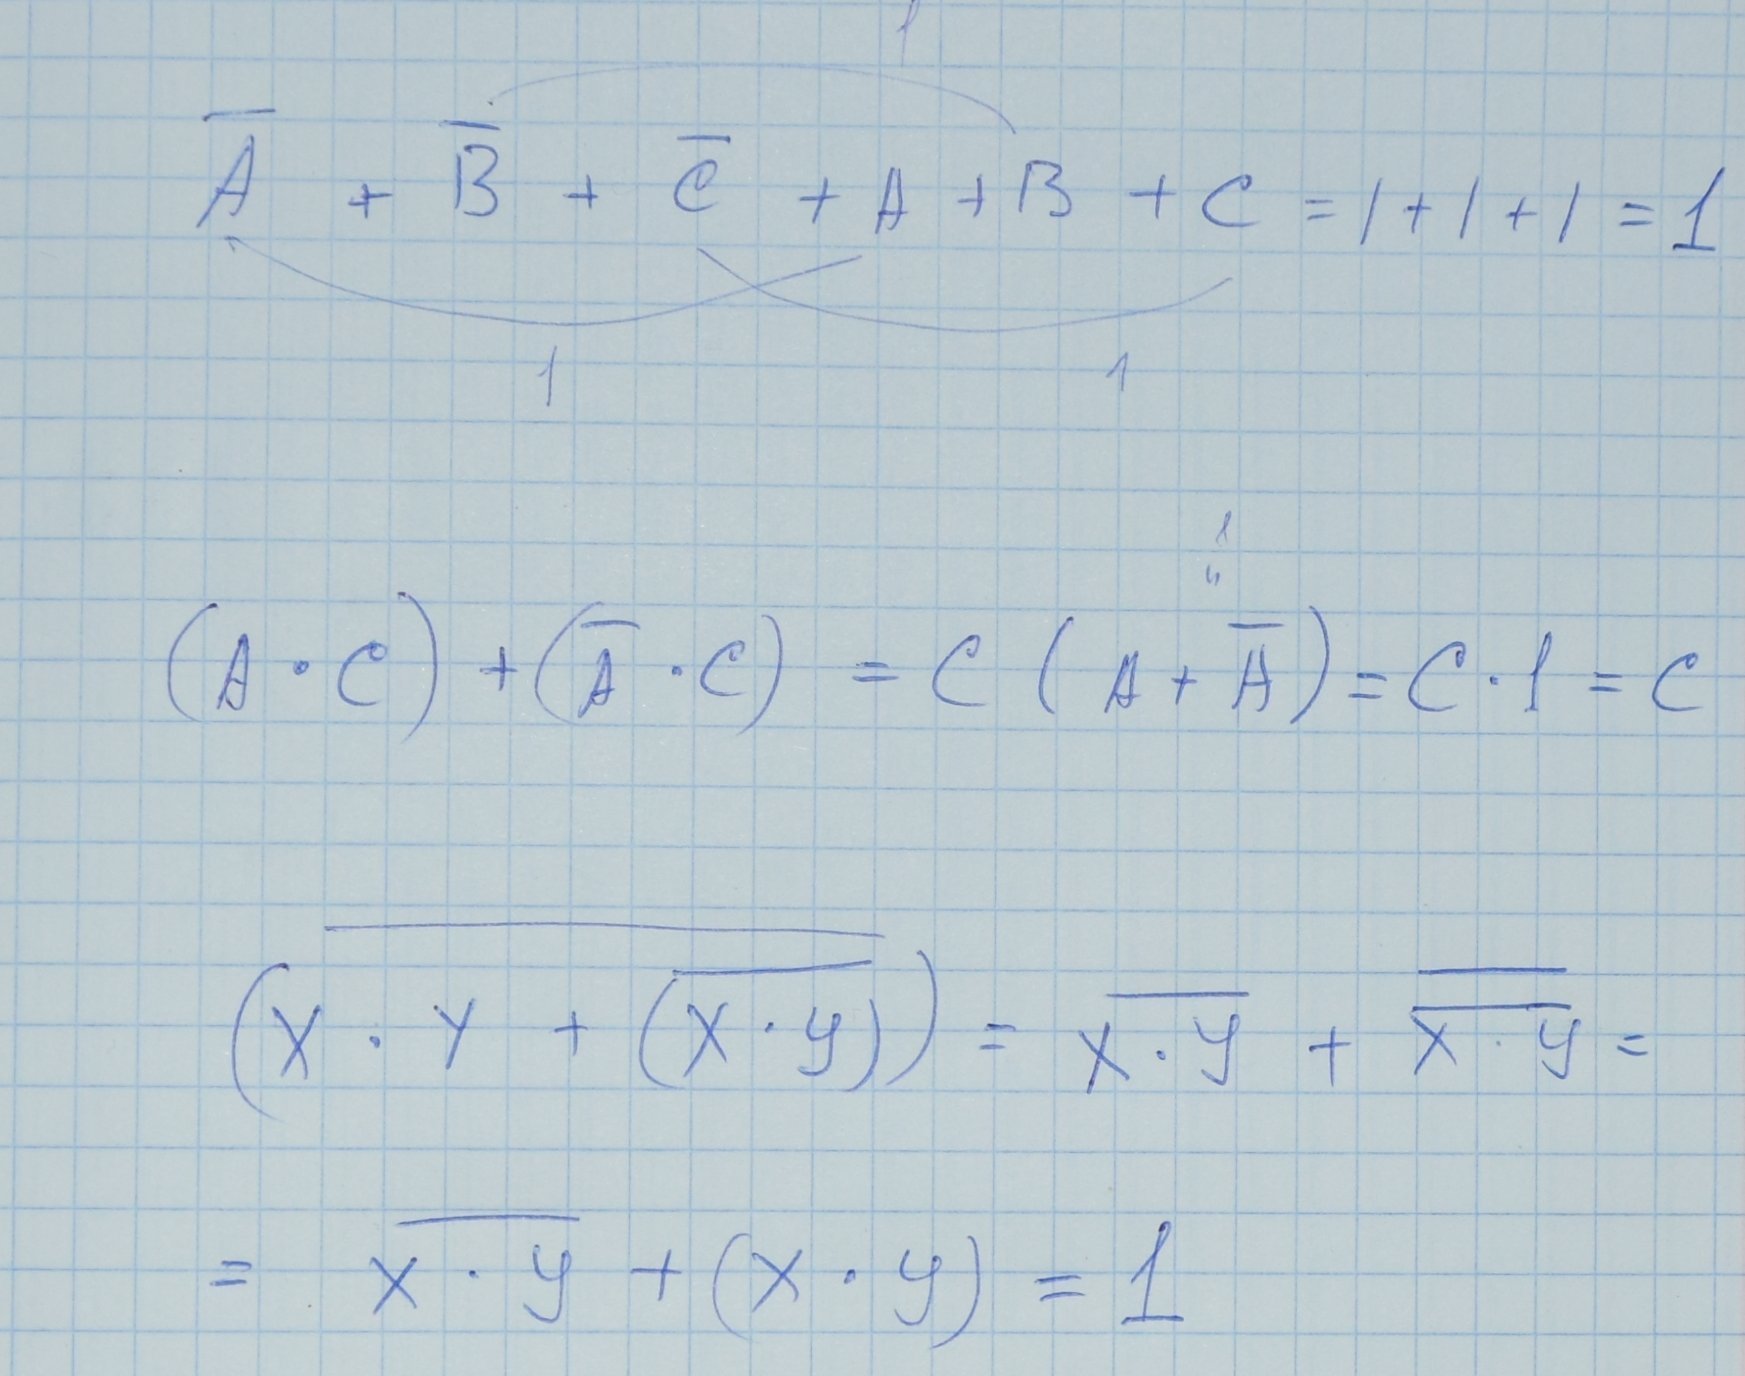 1
A̅ + B̅ + C̅ + A + B + C = 1 + 1 + 1 = 1
1 1
1
"
(A · C) + (A̅ · C) = C (A + A̅) = C · 1 = C
(\overline{X · Y + (\overline{X · y})}) = \overline{X · y} + \overline{\overline{X · y}} =
= \overline{X · y} + (X · y) = 1